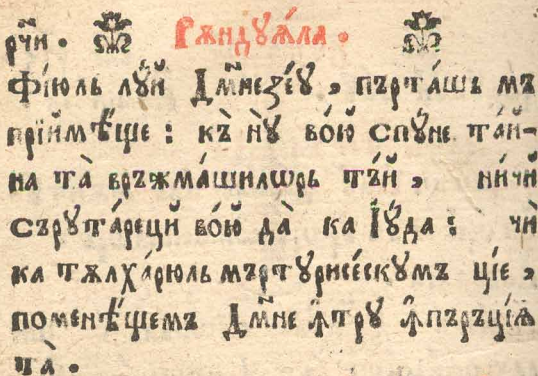 рчй. Рѫндꙋѧла.
Фі́юль лꙋ́й Дм҃незе́ꙋ, пърта́шь мъ
прїймѣ́ще: къ̀ нꙋ̀ во́ю спꙋ́не та́й-
на та̀ връжма́шилѡрь тъ́й, ни́чй
сърꙋта́рецй во́ю да̀ ка Іꙋ́да: чѝ
ка тѫлха́рюль мъртꙋрисе́скꙋмъ ці́е,
поменѣ́щемъ Дм҃не ꙟ҆трꙋ ꙟ҆пъръці́ѧ
та̀.